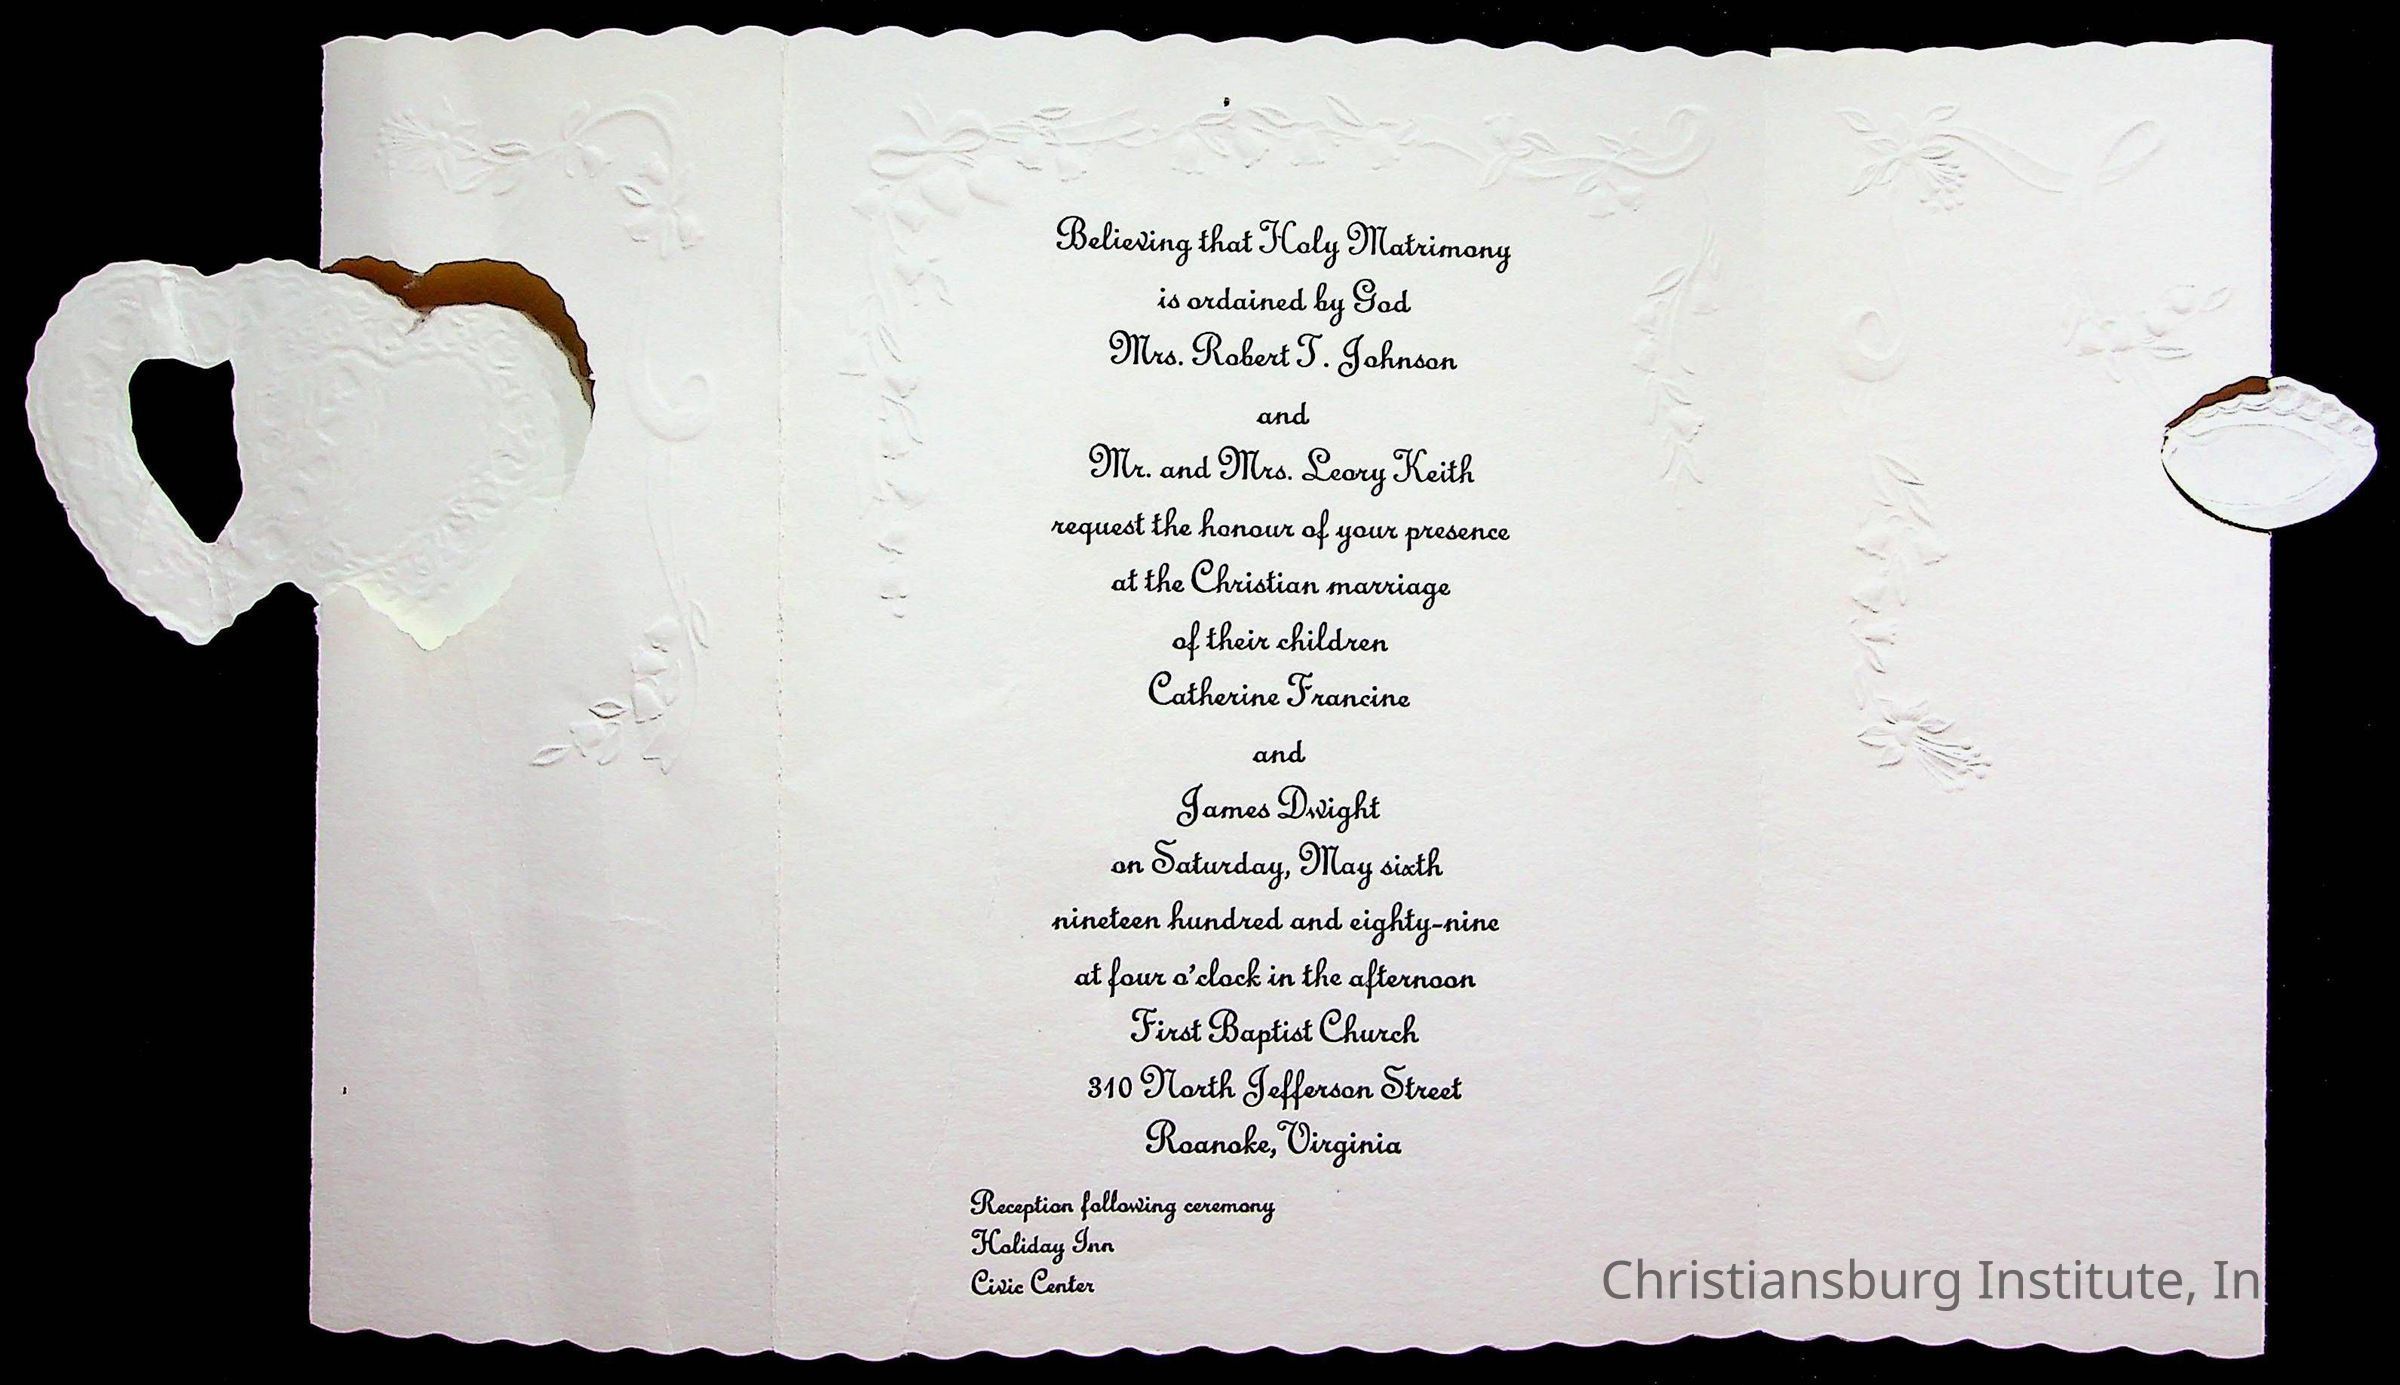 Believing that Holy Matrimony
is ordained by God
Mrs. Robert T. Johnson
and
Mr. and Mrs. Leory Keith
request the honour of your presence
at the Christian marriage
of their children
Catherine Francine
and
James Dwight
on Saturday, May sixth
nineteen hundred and eighty-nine
at four o'clock in the afternoon
First Baptist Church
310 North Jefferson Street
Roanoke, Virginia
Reception following ceremony
Holiday Inn
Civic Center
Christiansburg Institute, In